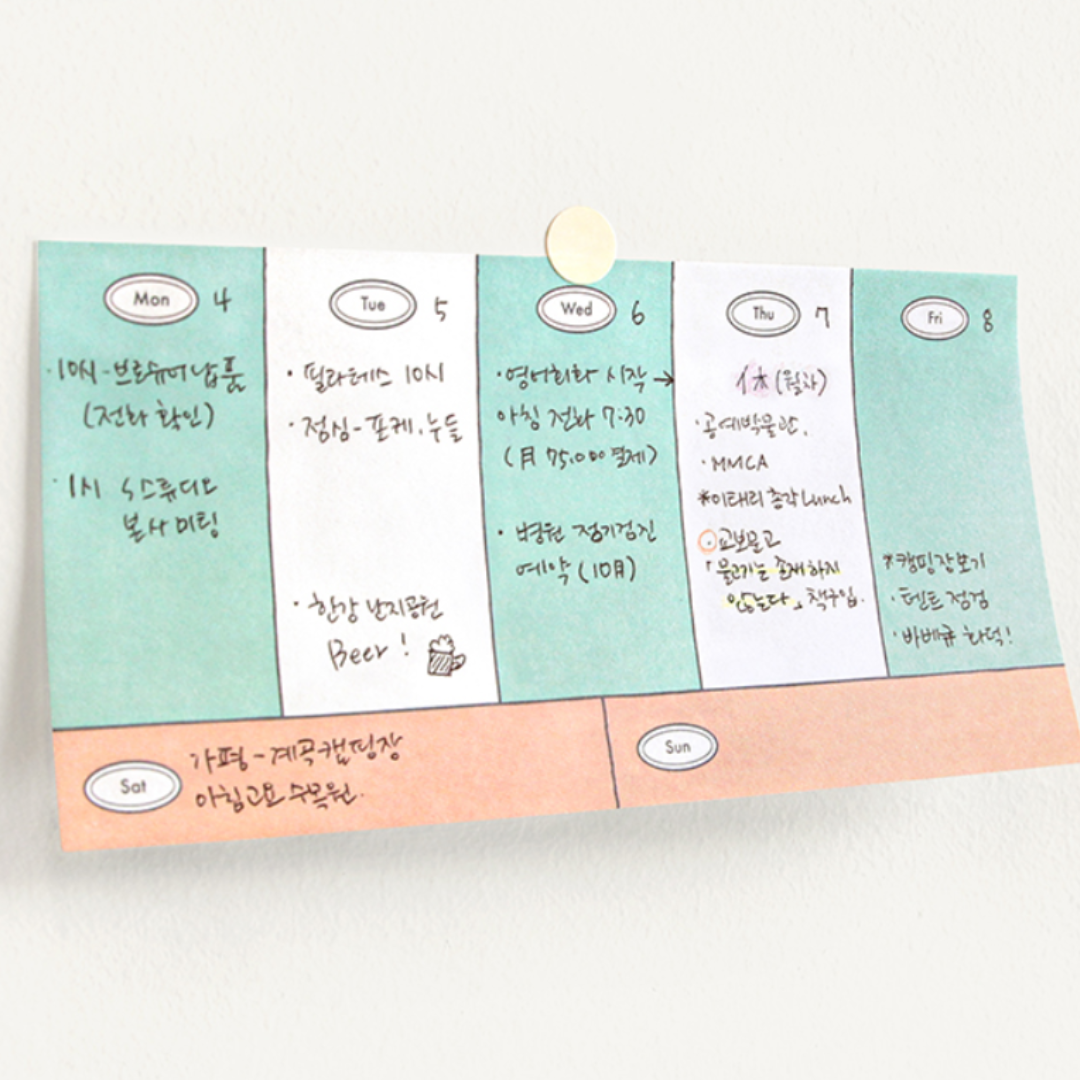 Mon 4
· 10시-브로슈어 납품
(전화 확인)
· 1시 S스튜디오
본사 미팅
Tue 5
· 필라테스 10시
· 점심-포케.누들
· 한강 난지공원
Beer!
Wed 6
· 영어회화 시작 →
아침 전화 7:30
(月 75,000 결제)
· 병원 정기검진
예약 (10月)
Thu 7
休 (월차)
· 공예박물관.
· MMCA
*이태리 총각 Lunch
· 교보문고
「물고기는 존재하지
않는다」 책구입.
Fri 8
*캠핑장보기
· 텐트 점검
· 바베큐 화덕!
Sat
가평-계곡캠핑장
아침고요 수목원.
Sun